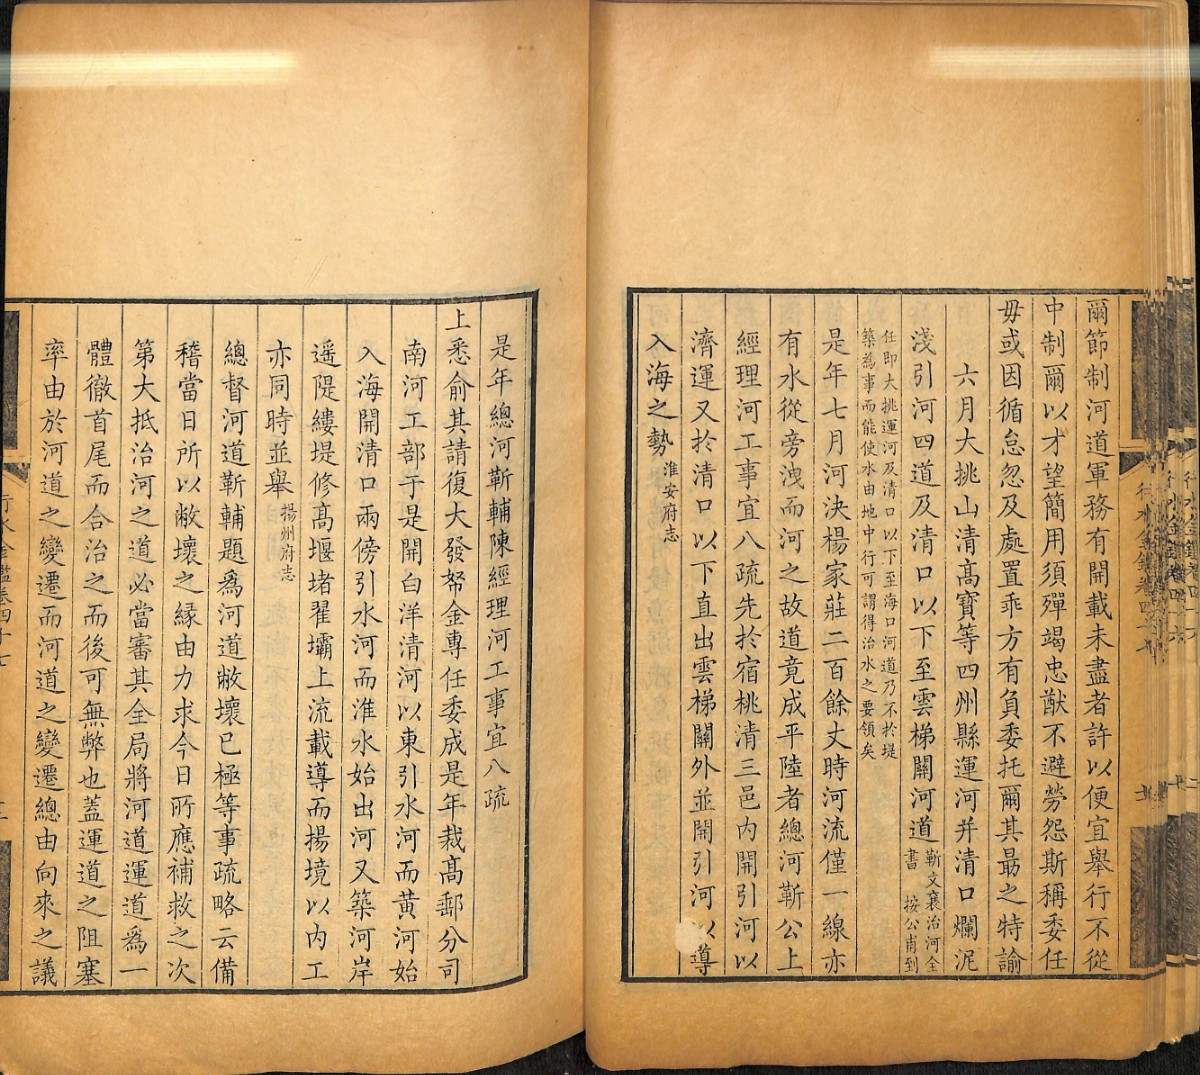 爾節制河道軍務有開載未盡者許以便宜舉行不從
中制爾以才望簡用須殫竭忠猷不避勞怨斯稱委任
毋或因循怠忽及處置乖方有負委托爾其勗之特諭
六月大挑山清高寶等四州縣運河并清口爛泥
淺引河四道及清口以下至雲梯關河道靳文襄治河全書 按公甫到
任即大挑運河及清口以下至海口河道乃不於堤
築為事而能使水由地中行可謂得治水之要領矣
是年七月河決楊家莊二百餘丈時河流僅一線亦
有水從旁洩而河之故道竟成平陸者總河靳公上
經理河工事宜八疏先於宿桃清三邑內開引河以
濟運又於清口以下直出雲梯關外並開引河以導
入海之勢淮安府志
是年總河靳輔陳經理河工事宜八疏
上悉俞其請復大發帑金專任委成是年裁高郵分司
南河工部于是開白洋清河以東引水河而黃河始
入海開清口兩傍引水河而淮水始出河又築河岸
遥隄縷堤修高堰堵翟壩上流載導而揚境以内工
亦同時並舉揚州府志
總督河道靳輔題爲河道敝壞已極等事疏略云備
稽當日所以敝壞之緣由力求今日所應補救之次
第大抵治河之道必當審其全局將河道運道爲一
體徹首尾而合治之而後可無弊也蓋運道之阻塞
率由於河道之變遷而河道之變遷總由向來之議
行水金鑑卷四十七